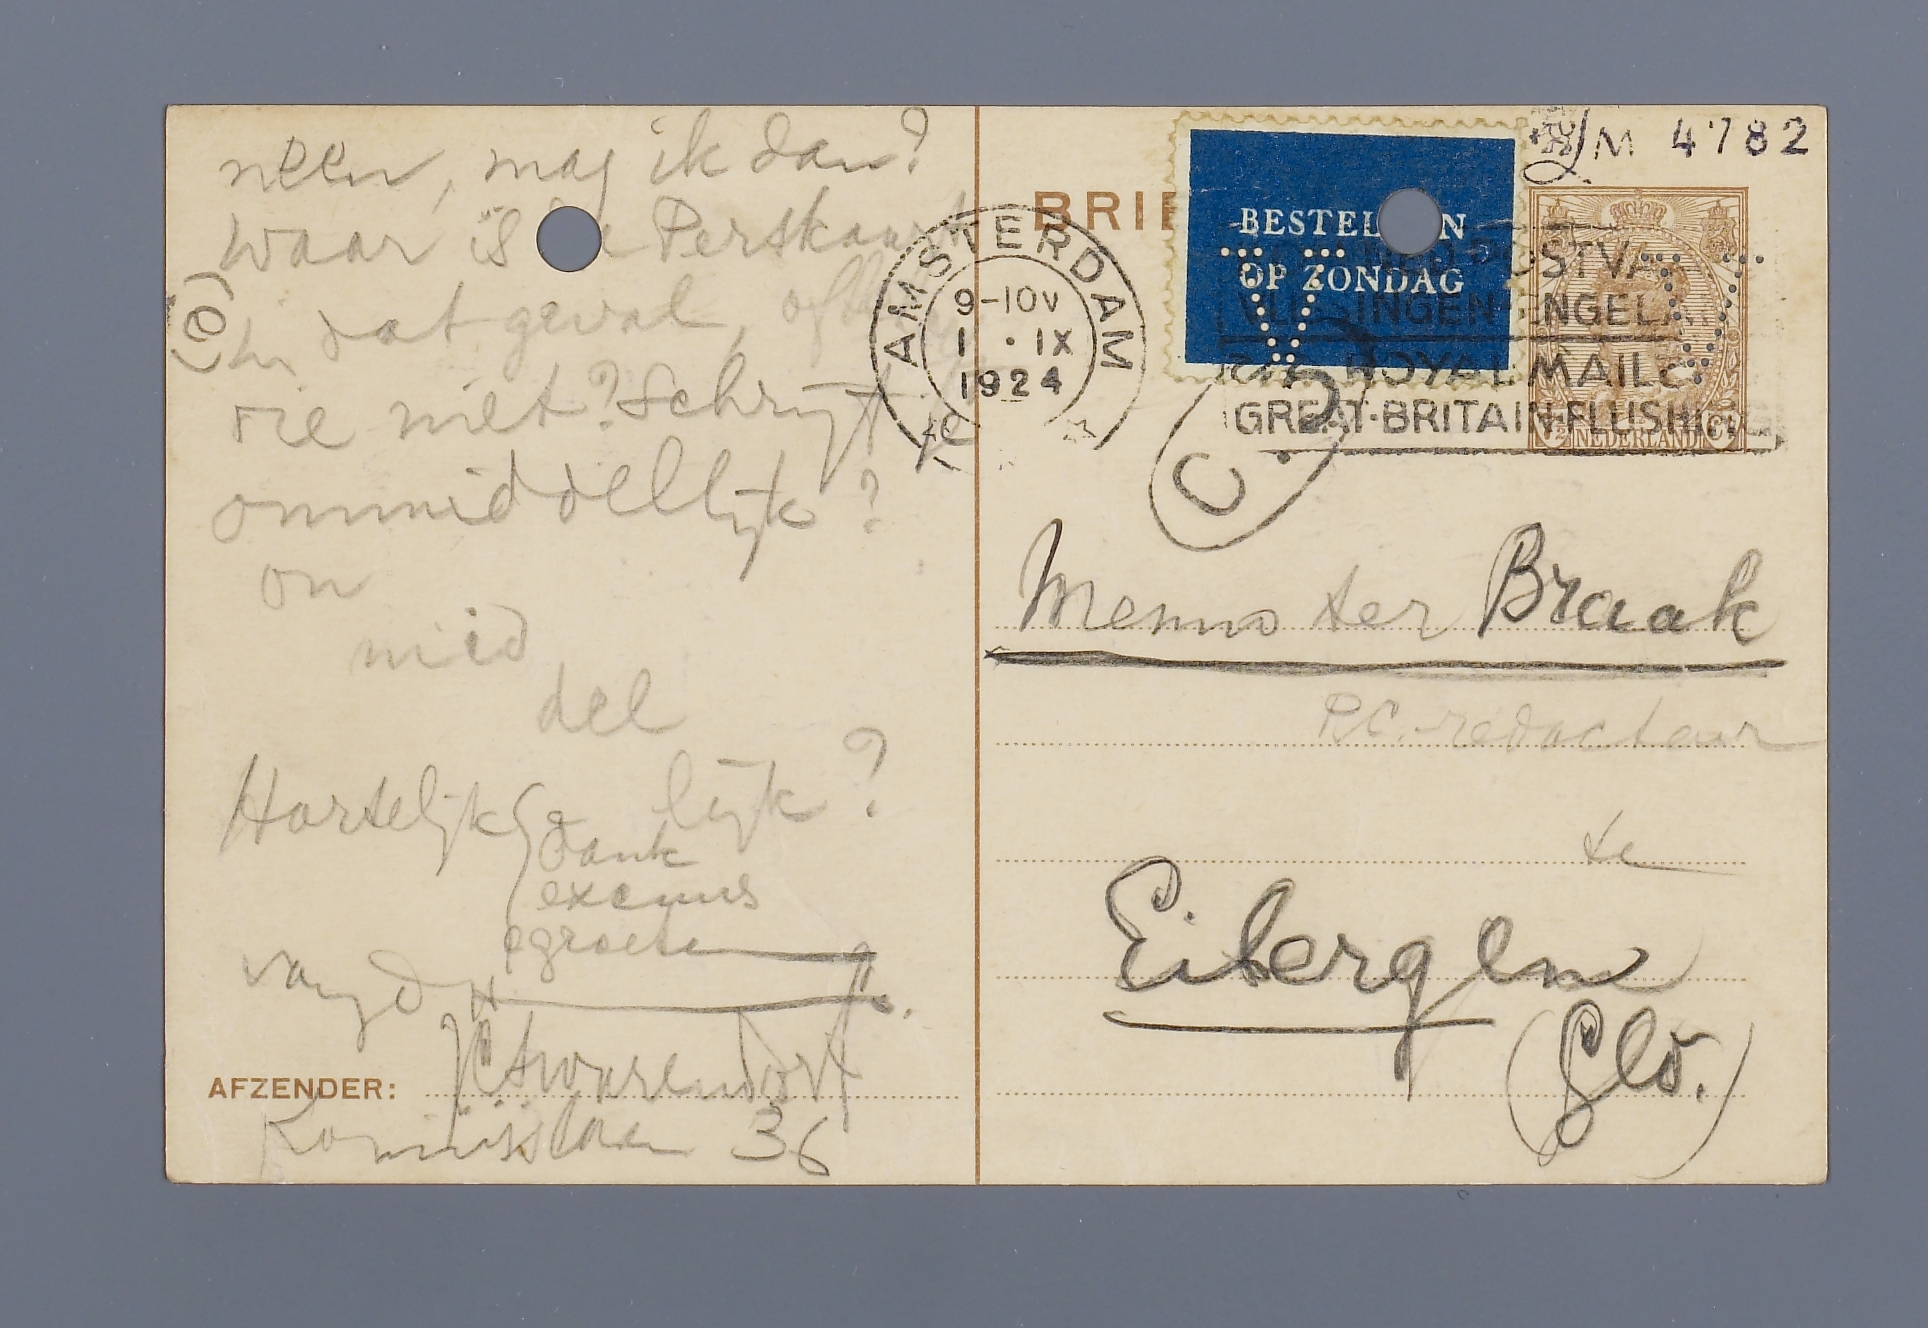 neen, mag ik dan?
waar is de Perskaart
in dat geval, of is
die niet? Schrijf je
ommiddellijk?
on
mid
del
lijk?
Hartelijk
dank
excuus
groeten
van
JCSwarendorf
AFZENDER:
Koninslaan 36
(e)
LM 4782
BRIEF
BESTELLEN
OP ZONDAG
AMSTERDAM
9-10V
1 · IX
1924
POSTVA
VLISSINGEN-ENGELA
ROYAL MAIL
GREAT-BRITAIN-FLUSHING
NEDERLAND
C.
Menno ter Braak
P.C.-redacteur
te
Eibergen
(Gld.)